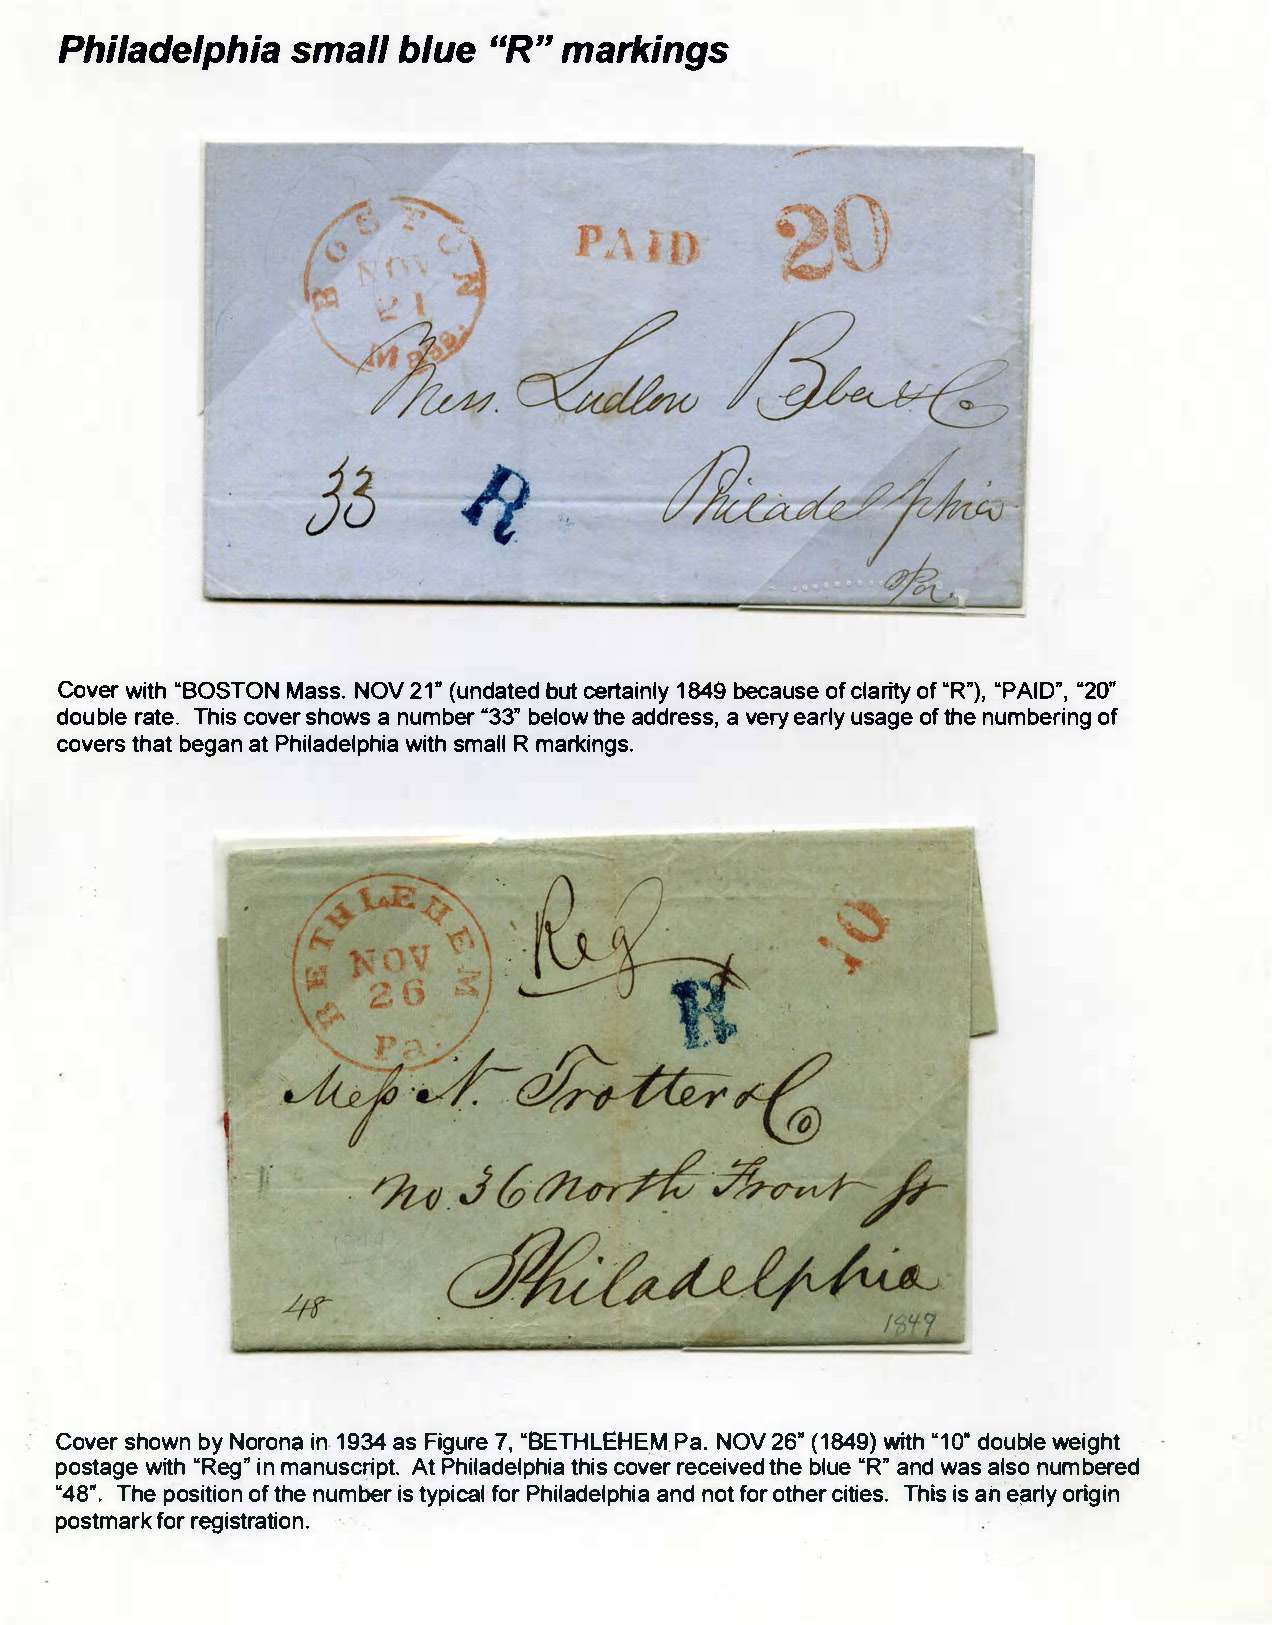 Philadelphia small blue “R” markings
BOSTON
NOV
21
Mass.
PAID 20
Mess. Ludlow Beebe & Co
33 R Philadelphia
Pa.
Cover with “BOSTON Mass. NOV 21” (undated but certainly 1849 because of clarity of “R”), “PAID”, “20”
double rate. This cover shows a number “33” below the address, a very early usage of the numbering of
covers that began at Philadelphia with small R markings.
BETHLEHEM
NOV
26
Pa.
Reg
10
R
Mess N. Trotter & Co
No. 36 North Front St
Philadelphia
48
1849
Cover shown by Norona in 1934 as Figure 7, “BETHLEHEM Pa. NOV 26” (1849) with “10” double weight
postage with “Reg” in manuscript. At Philadelphia this cover received the blue “R” and was also numbered
“48”. The position of the number is typical for Philadelphia and not for other cities. This is an early origin
postmark for registration.